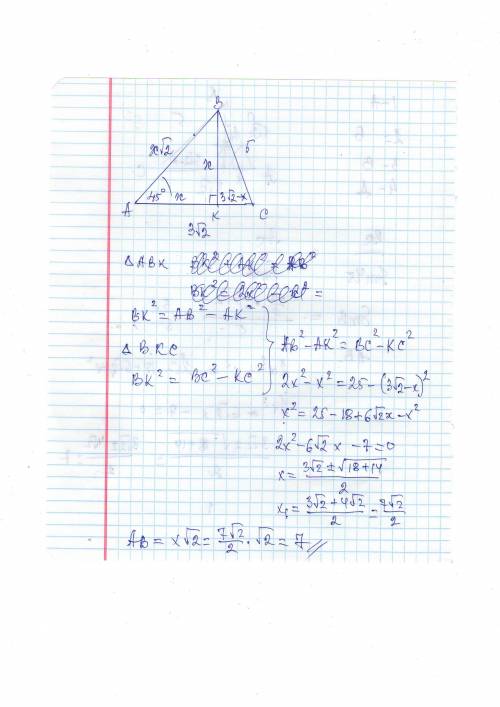 B
x√2
x
5
45° x
3√2-x
A
K
C
3√2
△ABK
BK² = AB² - AK²
△BKC
BK² = BC² - KC²
AB² - AK² = BC² - KC²
2x² - x² = 25 - (3√2-x)²
x² = 25 - 18 + 6√2x - x²
2x² - 6√2x - 7 = 0
x = (3√2 ± √(18+14))/2
x₁ = (3√2 + 4√2)/2 = 7√2/2
AB = x√2 = 7√2/2 · √2 = 7 //